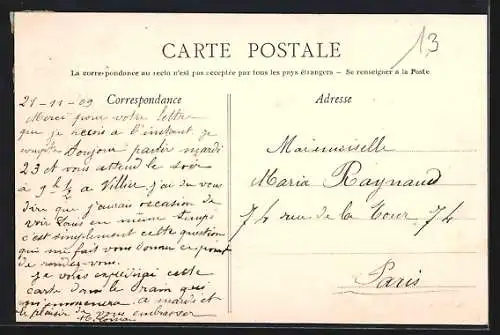 13
CARTE POSTALE
La correspondance au recto n'est pas acceptée par tous les pays étrangers – Se renseigner à la Poste
Correspondance
Adresse
21-11-09
Merci pour votre lettre
que je reçois à l'instant. je
compte toujours partir mardi
23 et vous attend le soir
à 9h ½ à Villier. j'ai de vous
dire que j'aurais occasion de
voir Louis en même temps
c'est simplement cette question
qui me fait vous donner ce point
de rendez-vous.
je vous expédiai cette
carte dans le train qui
m'emmenera. à mardi et
le plaisir de vous embrasser
Mademoiselle
Maria Raynaud
74 rue de la Tour 74
Paris